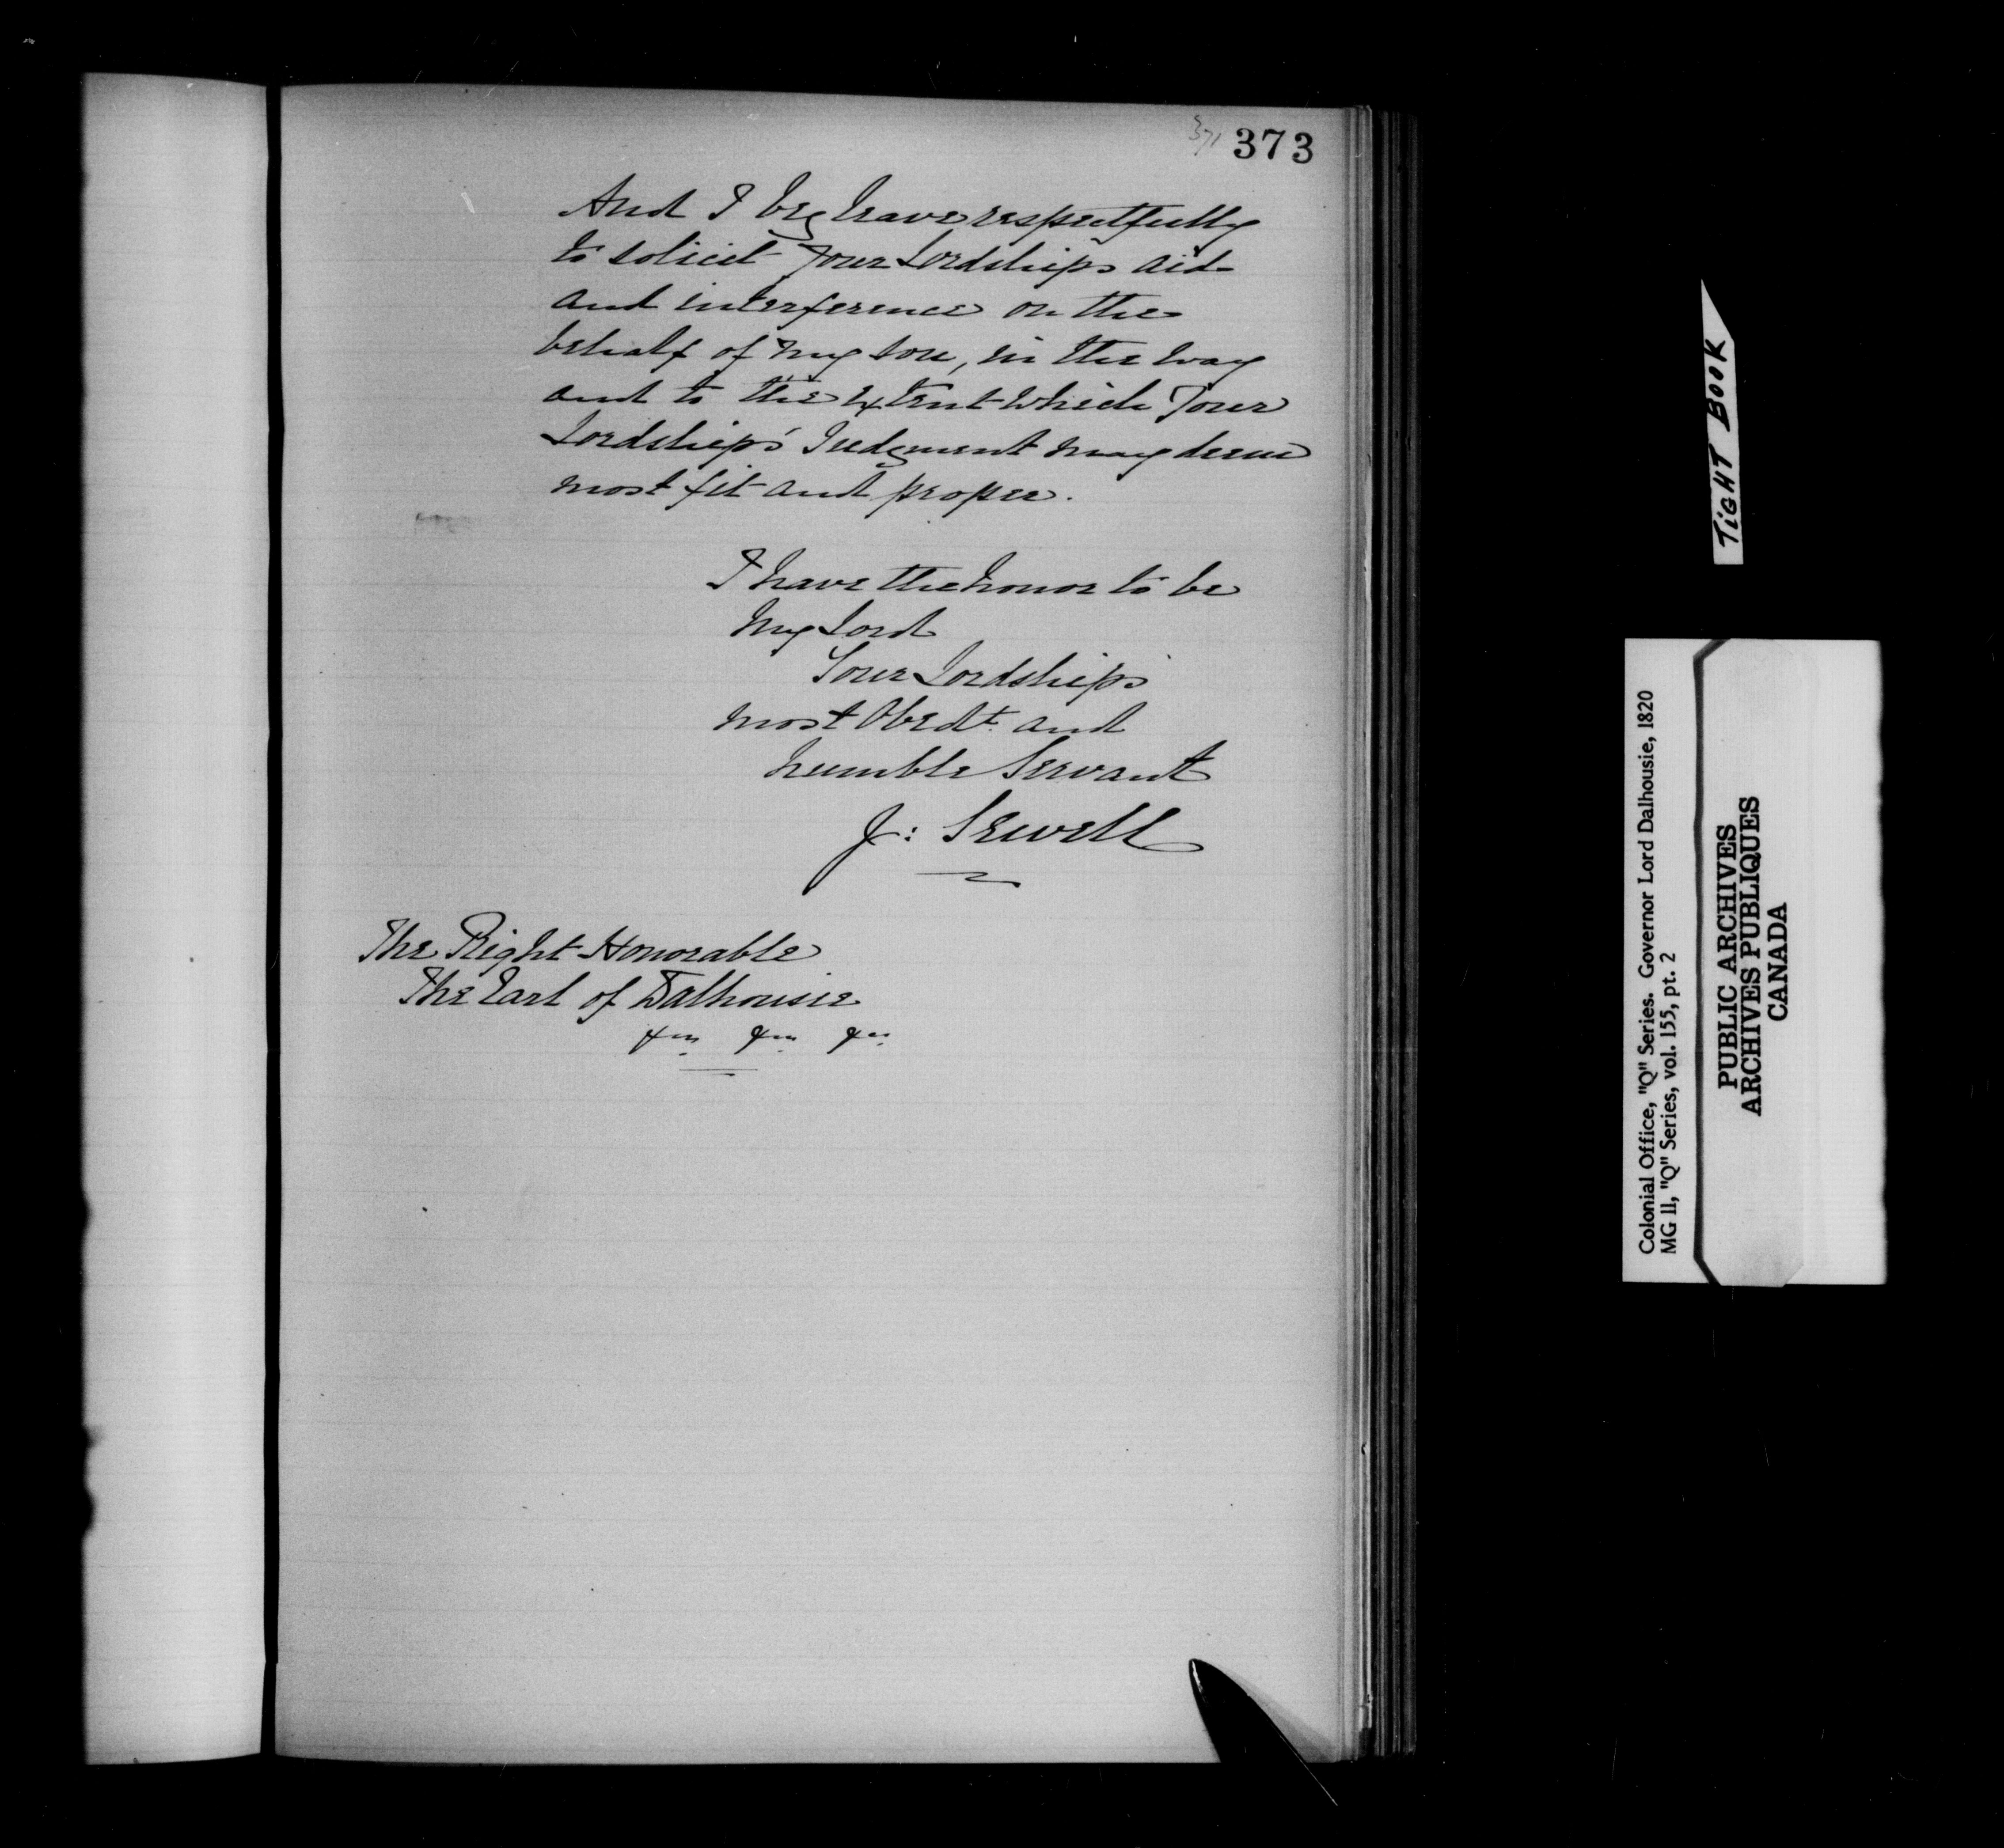 371 373
And I beg leave respectfully
to solicit Your Lordships aid
and interference on the
behalf of my son, in the way
and to the extent which Your
Lordships' Judgment may deem
most fit and proper.
I have the honor to be
My Lord
Your Lordships
most Obedt. and
humble Servant
J: Sewell
The Right Honorable
The Earl of Dalhousie
&ca. &ca. &ca.
TIGHT BOOK
Colonial Office, "Q" Series. Governor Lord Dalhousie, 1820
MG 11, "Q" Series, vol. 155, pt. 2
PUBLIC ARCHIVES
ARCHIVES PUBLIQUES
CANADA